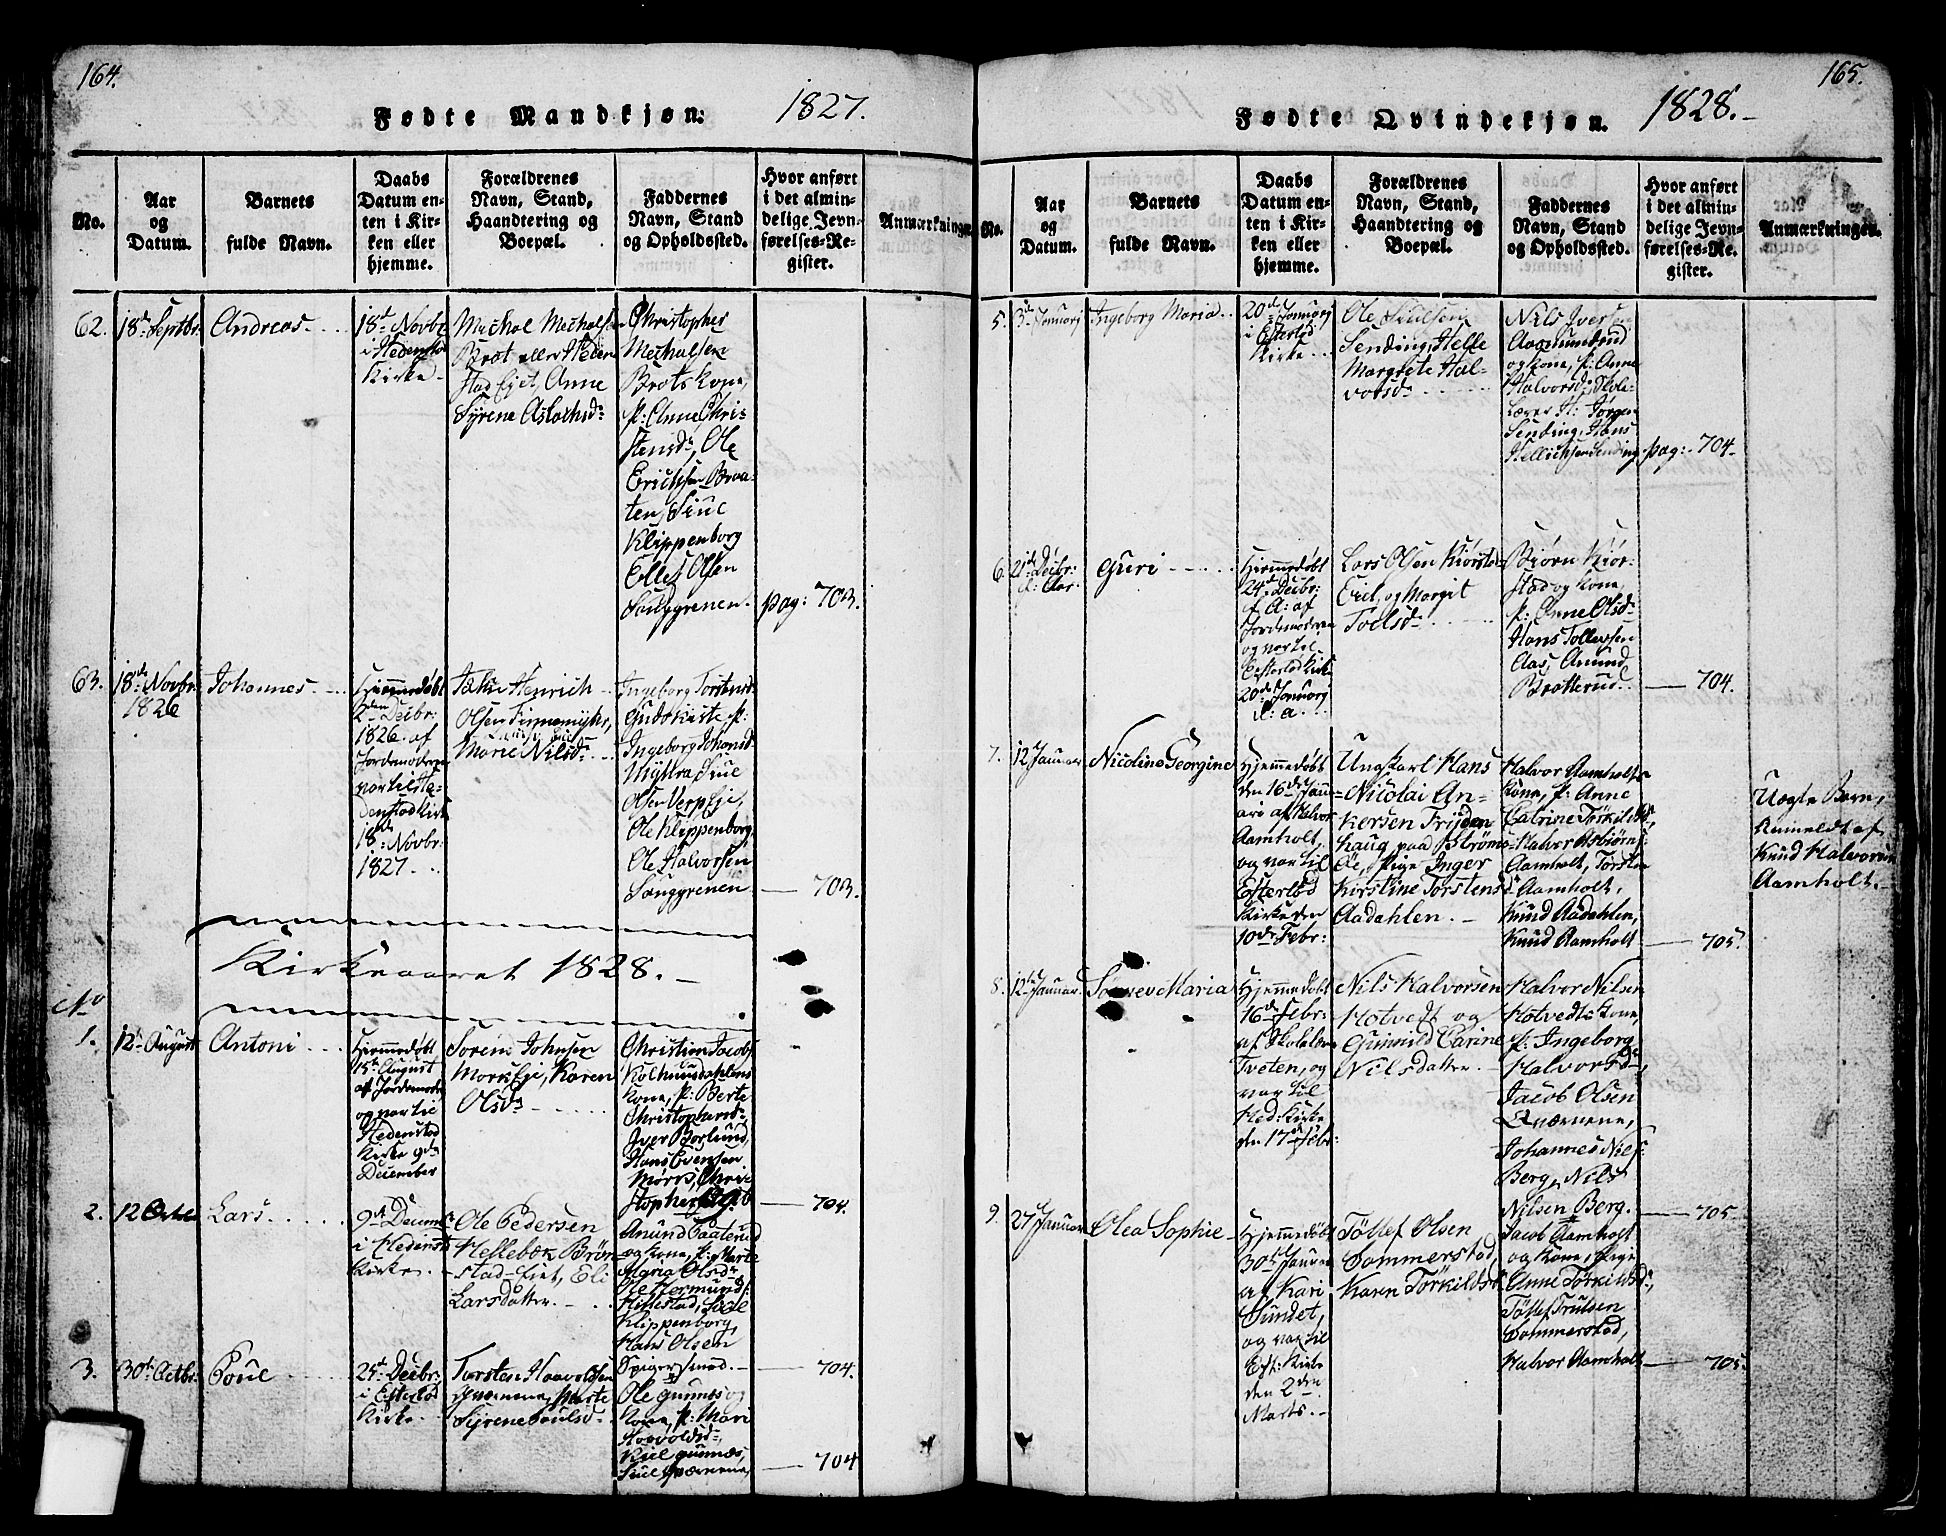 164.
Fødte Mandkjøn: 1827.
No.
Aar
og
Datum.
Barnets
fulde Navn.
Daabs
Datum en-
ten i Kir-
ken eller
hjemme.
Forældrenes
Navn, Stand,
Haandtering og
Boepæl.
Faddernes
Navn, Stand
og Opholdssted.
Hvor anført
i det almin-
delige Jevn-
førelses-Re-
gister.
Anmærkninger.
62.
18de Septbr:
Andreas
18d Novbr
i Hedenstad
Kirke
Mechal Mechalsen
Brot eller Heden-
stad Ejet, Anne
Syrene Aslachsd:
Christopher
Mechalsen
Brots Kone,
p: Anne Chri-
stensd:, Ole
Erichsen Braa-
ten,
Klippenborg
Olsen
Sauggrenen.
pag: 703.
63.
18de Novbr:
1826
Johannes
Hjemmedøbt
2den Decbr:
1826 af
Jordemoderen
var til He-
denstad Kirke
18de Novbr:
1827.
Henrich
Olsen
Marie Nilsd:
Ingeborg Torstensd:
p:
Ingeborg Johansd:
Olsen Verp Eje,
Ole Klippenborg,
Ole Halvorsen
Sauggrenen
703.
Kirkeaaret 1828.
No
1.
12te August
Antoni
Hjemmedøbt
15de August
af Jordemoder
og var til
Hedenstad
Kirke 9de
December
Søren Johnsen
Mork Eje, Karen
Olsd:
Christian Jacobs.
Kone, p: Berte
Christophersd:
Iver Borlund,
Hans Evensen
Chri-
stopher
704.
2.
12 Octb
Lars
9de Decem
i Hedenst
Kirke.
Ole Pedersen
Hellebæk Brøn-
stad-Ejet, Eli
Larsdatter.
Amund
og Kone, p: Marte
Maria Olsd:
Ole Hermund
Hillestad,
Klippenborg,
Hans Olsen
Spigersmed.
704.
3.
30te Octbr:
Poul
25d Decbr:
i Efteløt
Kirke.
Torsten Haavoldsen
Qværnene, Marte
Syrene Poulsd:
Ole Gunnes og
Kone, p: Mari
Haavoldsd:,
Gunnæs,
Qværnene,
704
165.
Fødte Qvindekjøn. 1828.
No.
Aar
og
Datum.
Barnets
fulde Navn.
Daabs
Datum en-
ten i Kir-
ken eller
hjemme.
Forældrenes
Navn, Stand,
Haandtering og
Boepæl.
Faddernes
Navn, Stand
og Opholdssted.
Hvor anført
i det almin-
delige Jevn-
førelses-Re-
gister.
Anmærkninger.
5.
3d Januarj
Ingeborg Maria
20de Januarj
i Efteløt
Kirke
Ole
Sending, Helle
Margrete Hal-
vorsd:
Nils Iversen
Aasmundrud
og Kone, p: Anne
Halvorsd: Skole-
Lærer H: Jørgen
Sending, Hans
Hellichsen Sending
pag: 704.
6.
21de Decbr:
d: Aar
Guri
Hjemmedøbt
24d Decbr:
f: A: af
Jordemoderen
og var til
Efteløt Kirke
20de Januarj
d: a.
Lars Olsen Kiørstad-
Eiet, og Margit
Toelsd:
Biørn Kiør-
stad og Kone,
p: Anne Olsd:
Hans Tollefsen
Aas, Amund
Bratterud.
704.
7.
12 Januar
Nicoline Georgine
Hjemmedøbt
den 16de Janu-
ari af Halvor
Aamholt,
og var til
Efteløt
Kirke den
10de Febr:
Ungkarl Hans
Nicolai An-
kersen Fryden-
haug paa Strøms-
øe, Pige Inger
Kirstine Torstensd:
Aadahlen.
Halvor Aamholts
Kone, p: Anne
Catrine Torkildsd:,
Halvor Asbiørns:
Aamholt, Torsten
Aamholt,
Knud Aadahlen,
Knud Aamholt
705.
Uægte Barn,
Anmeldt af
Knud Halvorsen
Aamholt.
8.
12te Januar.
Maria
Hjemmedøbt
16de Febr:
af Skolelær
Tveten, og
var til
Hed: Kirke
den 17d Febr:
Nils Halvorsen
Hotvedt og
Gunnild Carine
Nilsdatter.
Halvor Nilsen
Hotvedts Kone,
p: Ingeborg
Halvorsd:,
Jacob Olsen
Qværnene,
Johannes Niels:
Berg, Nils
Nilsen Berg.
705.
9.
27 Januar
Olea Sophie
Hjemmedøbt
30te Januar
af Kari
Sundet,
og var til
Eft: Kirke
den 2den
Marts.
Tollef Olsen
Sommerstad,
Karen Torkildsd:
Jacob Aamholt
og Kone, Pige
Anne Torkildsd:,
Tollef Trulsen
Sommerstad,
Halvor Aamholt
705.